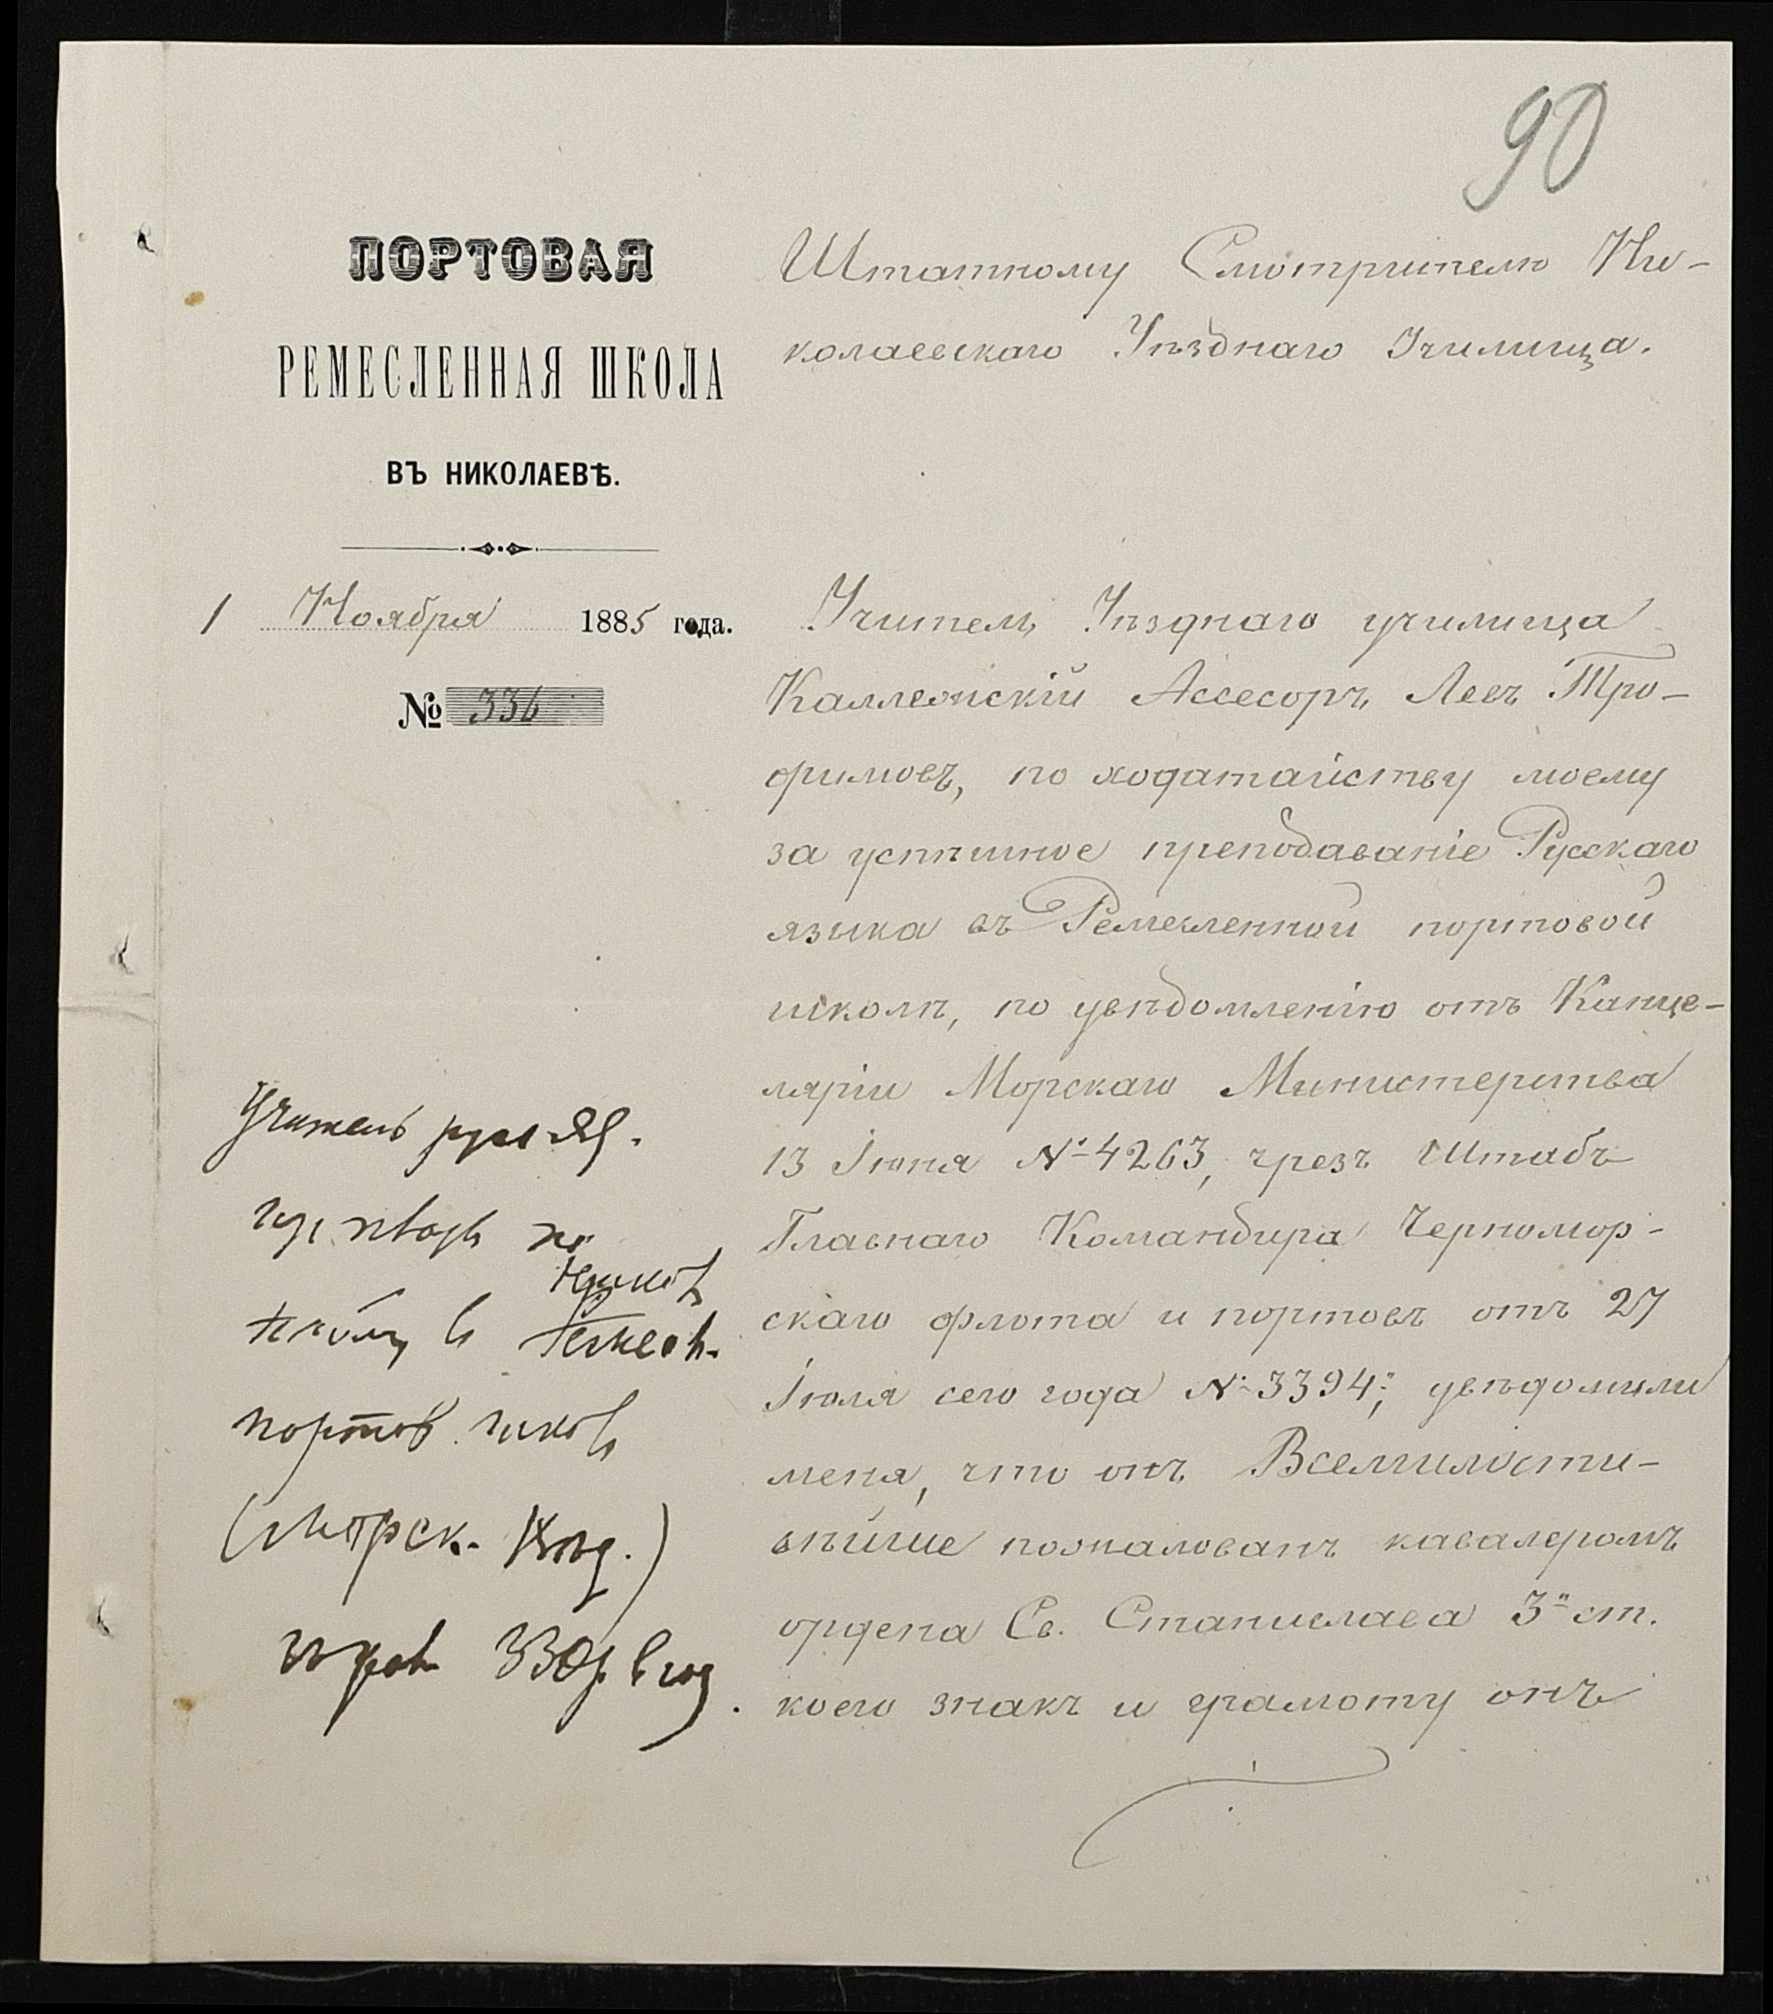 90
ПОРТОВАЯ
РЕМЕСЛЕННАЯ ШКОЛА
ВЪ НИКОЛАЕВѢ.
1 Ноября 1885 года.
№ 336
Штатному Смотрителю Ни-
колаевскаго Уѣзднаго Училища.
Учитель Уѣзднаго училища
Каллежскій Ассесоръ Левъ Тро-
фимовъ, по ходатайству моему
за успѣшное преподаваніе Русскаго
языка въ Ремесленной портовой
школѣ, по увѣдомленію отъ Канце-
ляріи Морскаго Министерства
13 Іюня № 4263, чрезъ Штабъ
Главнаго Командира Черномор-
скаго флота и портовъ отъ 27
Іюля сего года № 3394; увѣдомили
меня, что онъ Всемилости-
вѣйше пожалованъ кавалеромъ
ордена Св. Станислава 3й ст.
коего знакъ и грамоту онъ
Учитель
портов.
(Морск. )
330 р. в год.